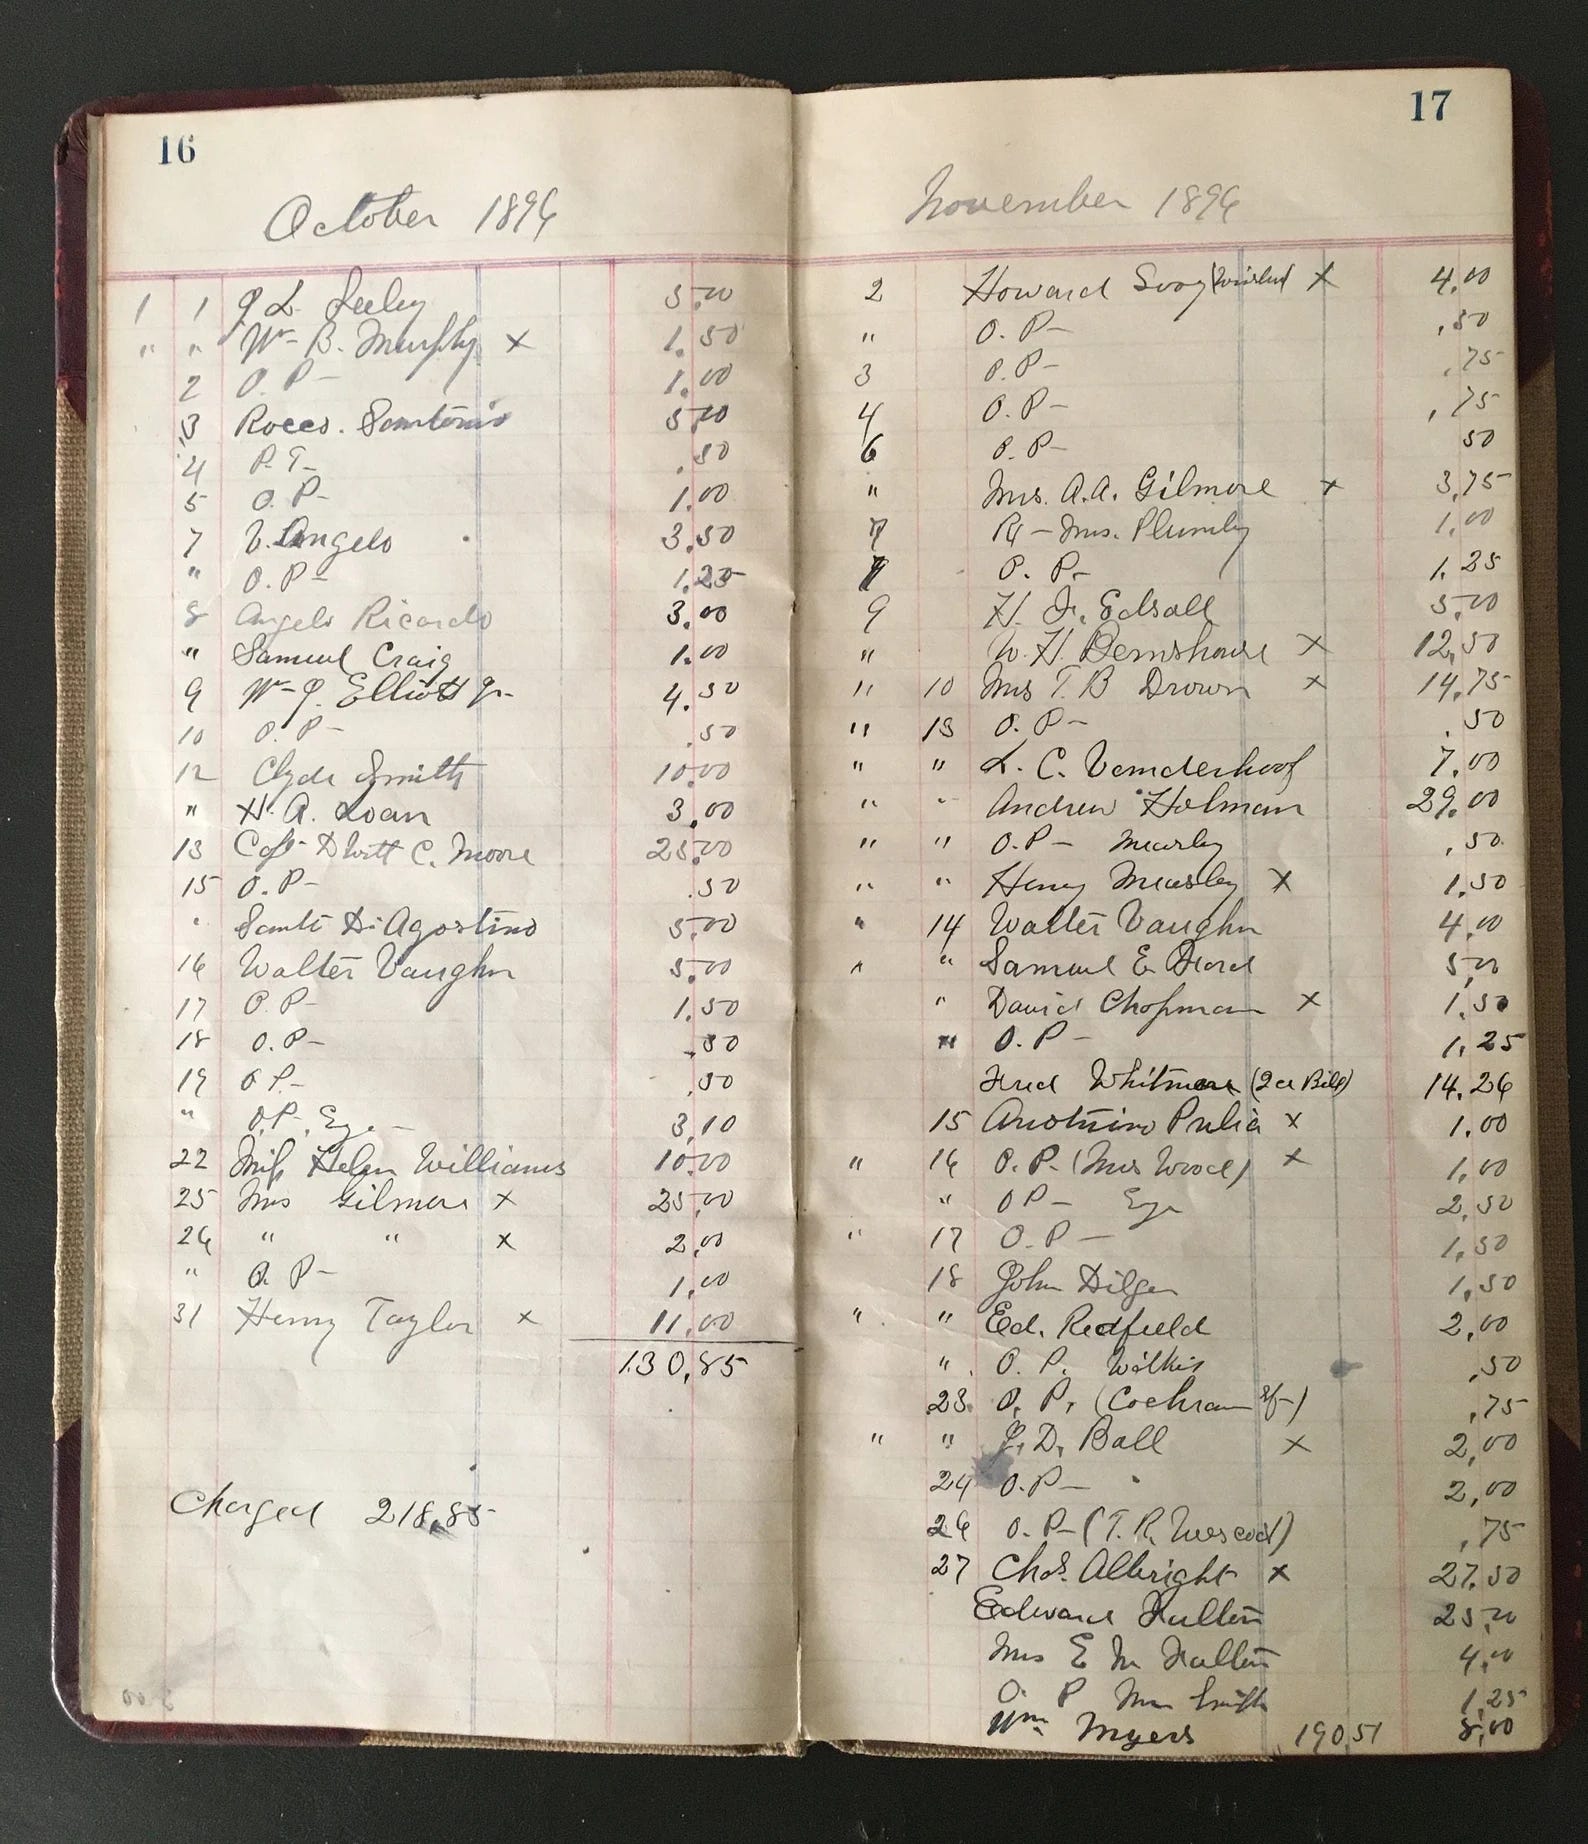 16
October 1896
1 1 J L. Seeley 5.00
" " Wm B. Murphy x 1.50
2 O. P— 1.00
3 Rocco. Santonio 5.00
4 P. T— .50
5 O. P— 1.00
7 V. Angelo 3.50
" O. P— 1.25
8 Angelo Ricardo 3.00
" Samuel Craig 1.00
9 Wm J. Elliott Jr— 4.50
10 O. P— .50
12 Clyde Smith 10.00
" H. A. Loan 3.00
13 Capt DWitt C. Moore 25.00
15 O. P— .50
" Santi Di Agostino 5.00
16 Walter Vaughn 5.00
17 O. P— 1.50
18 O. P— .50
19 O P— .50
" O. P. Eye— 3.10
22 Miss Helen Williams 10.00
25 Mrs Gilmore x 25.00
26 " " x 2.00
" O. P— 1.00
31 Henry Taylor x 11.00
130.85
Charged 218.85
17
November 1896
2 Howard x 4.00
" O. P— .50
3 O. P— .75
4 O. P— .75
6 O. P— 50
" Mrs. A. A. Gilmore x 3.75
7 Rx — Mrs. Plumly 1.00
7 O. P— 1.25
9 H. Jr. Edsall 5.00
" W. H. Bemshouse x 12.50
" 10 Mrs T. B Drown x 14.75
" 13 O. P— .50
" " L. C. Vanderhoof 7.00
" " Andrew Holman 29.00
" " O. P— Measley .50
" " Henry Measley x 1.50
" 14 Walter Vaughn 4.00
" " Samuel E. Ford 5.00
" David Chapman x 1.50
" O. P— 1.25
Fred Whitmore (2 a Bill) 14.26
15 Pulia x 1.00
" 16 O. P. (Mrs Wood) x 1.00
" O P— Eye 2.50
" 17 O. P— 1.50
18 John Dilger 1.50
" " Ed. Redfield 2.00
" O. P. Wilkis .50
23 O. P. (Cochran ) .75
" " J. D. Ball x 2.00
24 O. P— 2.00
26 O. P— (T. R. Wescod) .75
27 Chas. Albright x 27.50
Edward Fulton 25.00
Mrs E M Fulton 4.00
O. P Mrs Smith 1.25
Wm Myers 190.51 8.00